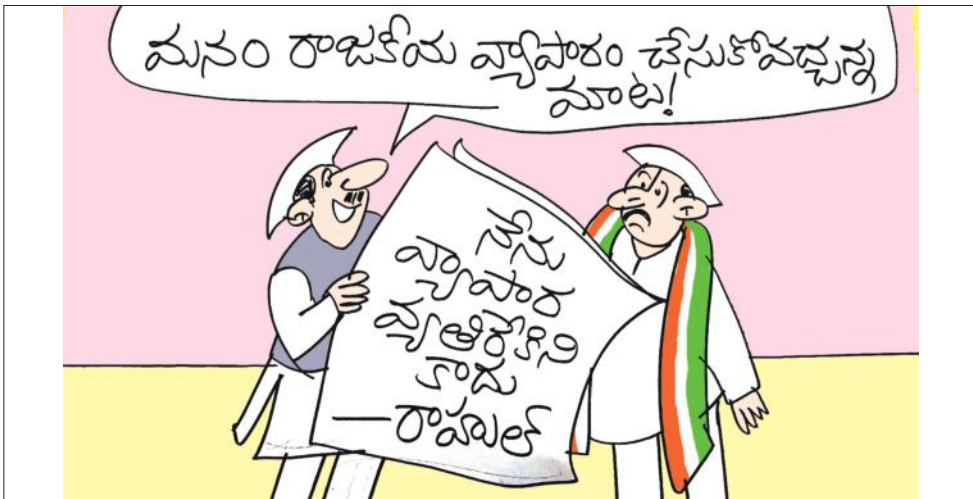 మనం రాజకీయ వ్యాపారం చేసుకోవచ్చన్న
మాట!
నేను
వ్యాపార
వ్యతిరేకిని
కాదు
—రాహుల్